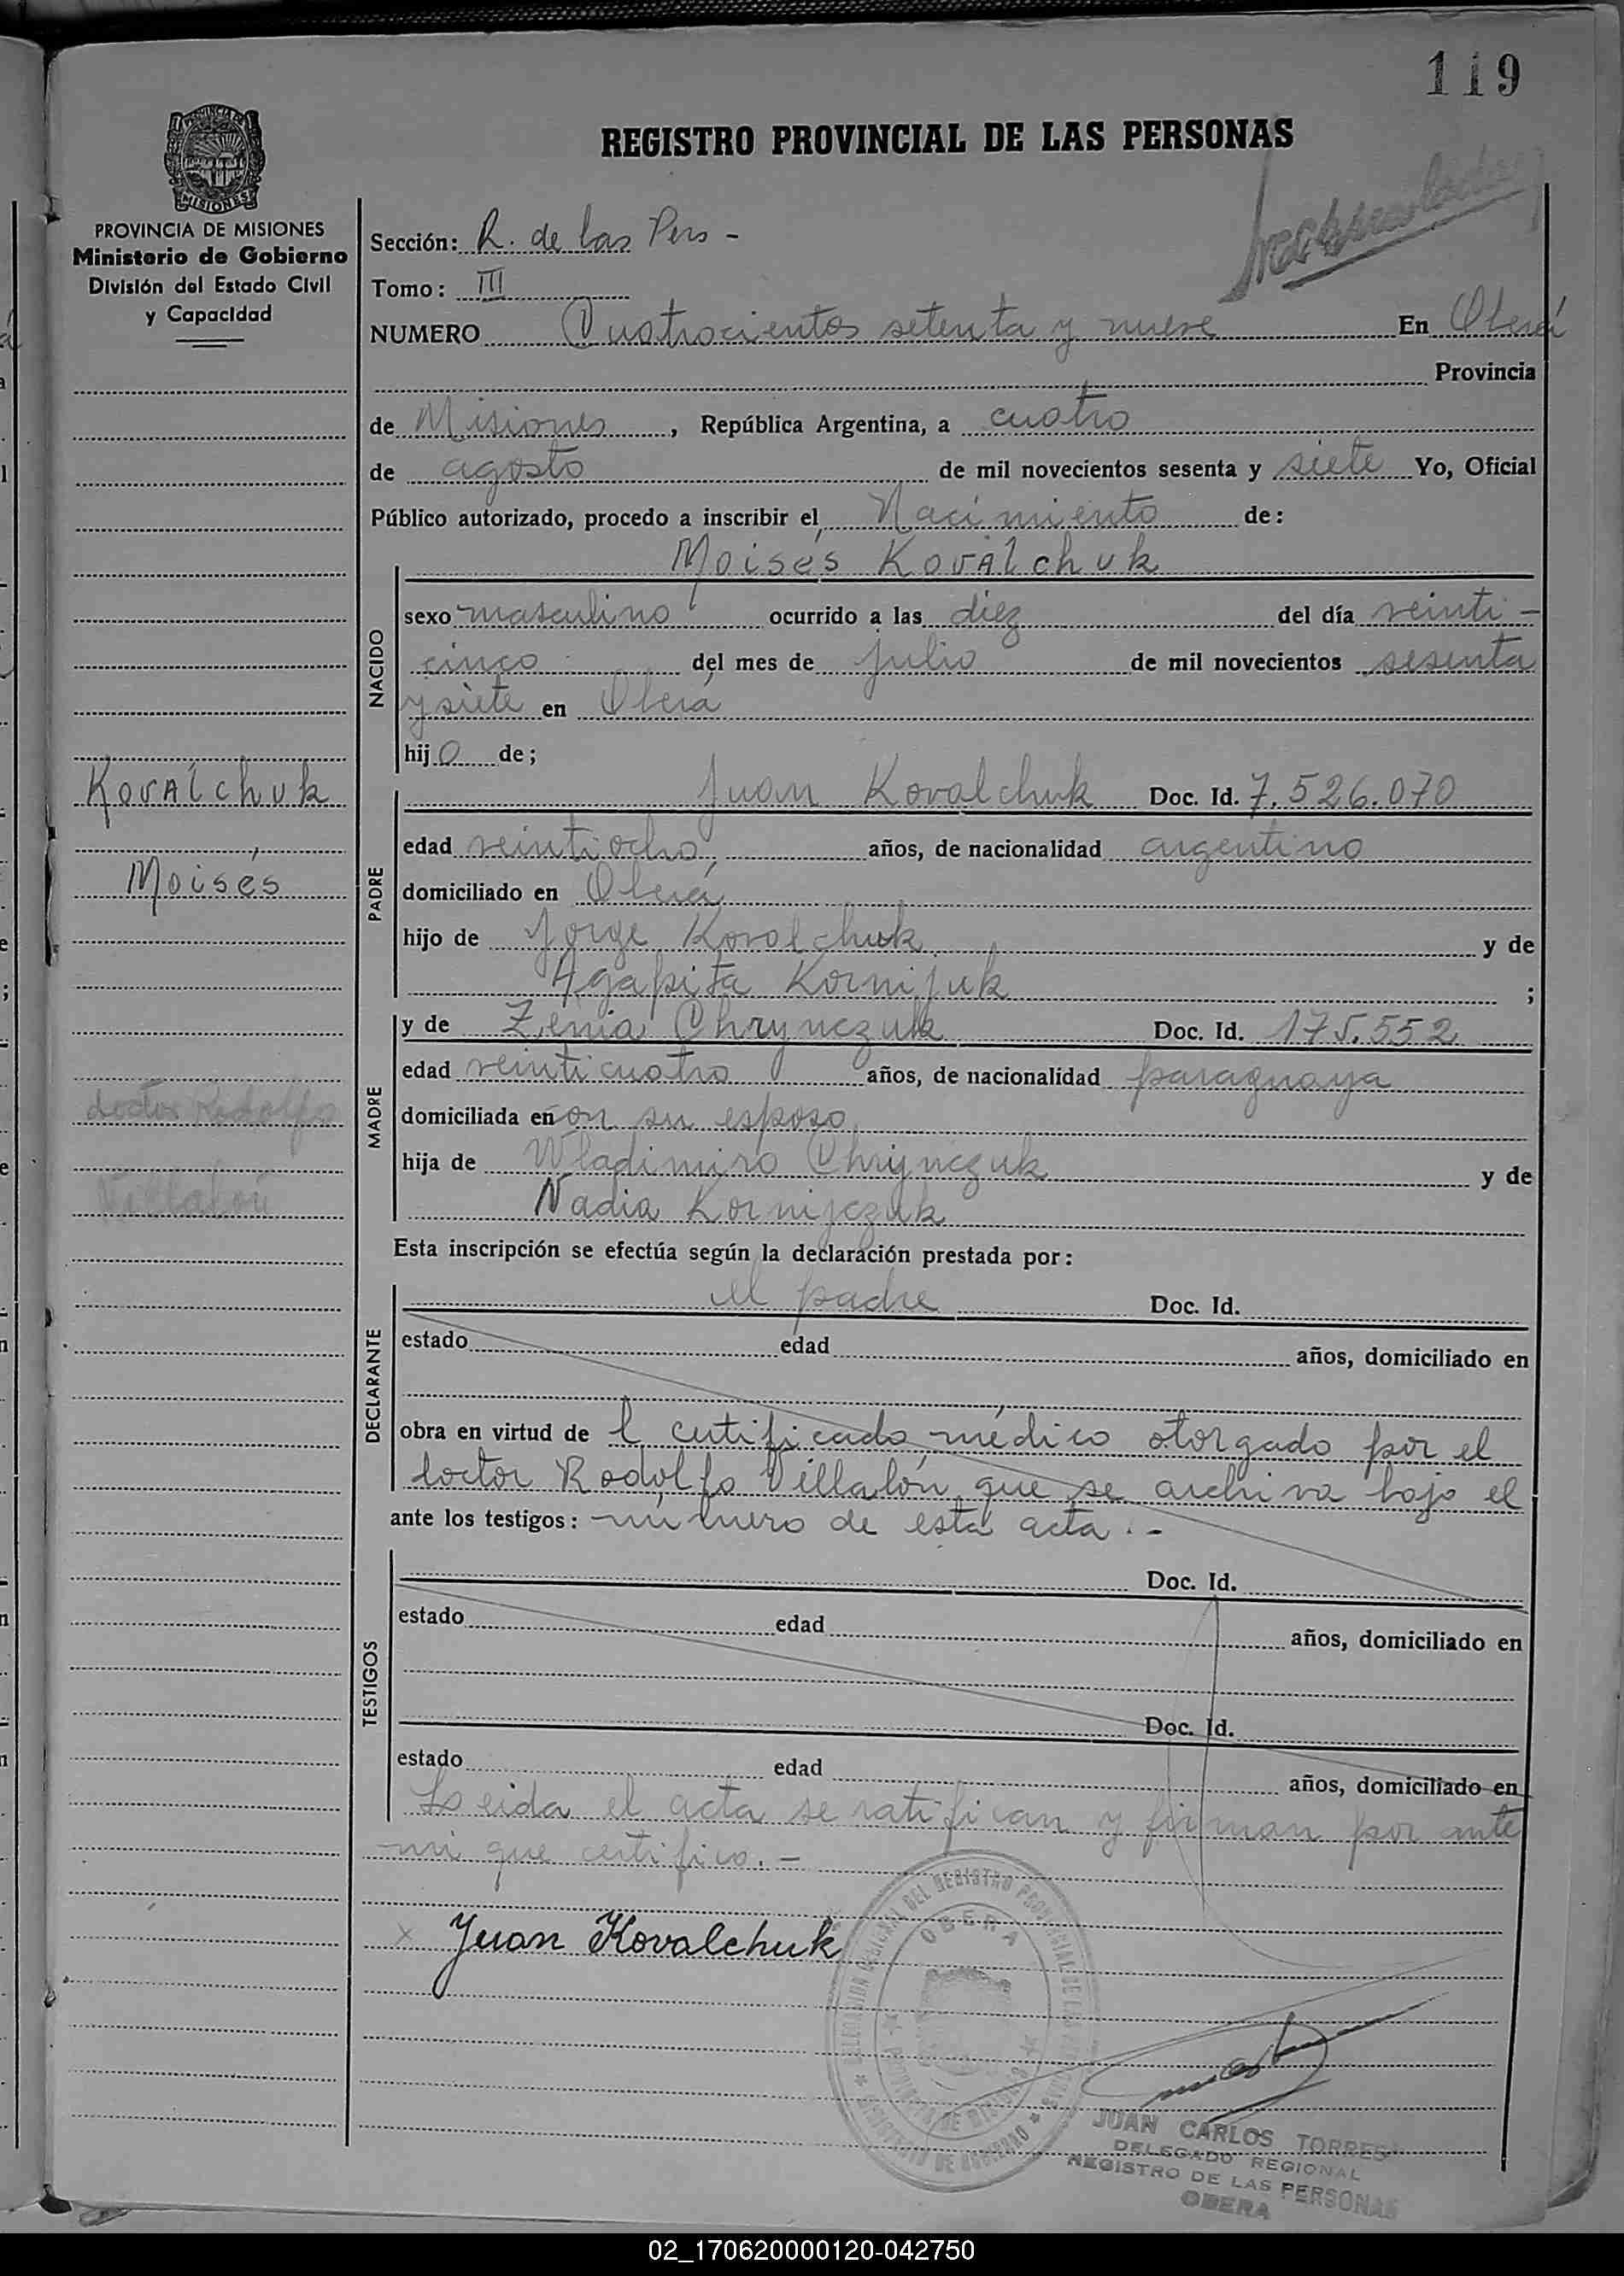 119
REGISTRO PROVINCIAL DE LAS PERSONAS
PROVINCIA DE MISIONES
Ministerio de Gobierno
División del Estado Civil
y Capacidad
Sección: R. de las Pers -
Tomo: III
NUMERO Cuatrocientos setenta y nueve En Oberá
Provincia
de Misiones, República Argentina, a cuatro
de agosto de mil novecientos sesenta y siete Yo, Oficial
Público autorizado, procedo a inscribir el Nacimiento de:
Moisés Kovalchuk
NACIDO
sexo masculino ocurrido a las diez del día veinti-
cinco del mes de julio de mil novecientos sesenta
y siete en Oberá
hijo de;
Kovalchuk
Moisés
Juan Kovalchuk Doc. Id. 7.526.070
PADRE
edad veintiocho, años, de nacionalidad argentino
domiciliado en Oberá
hijo de Jorge Kovalchuk y de
Agapita Kornijuk ;
y de Zenia Chrynczuk Doc. Id. 175.552
MADRE
edad veinticuatro años, de nacionalidad paraguaya
domiciliada en con su esposo
hija de Wladimiro Chrynczuk y de
Nadia Kornijczuk
doctor Rodolfo
Villalón
Esta inscripción se efectúa según la declaración prestada por:
el padre Doc. Id.
DECLARANTE
estado edad años, domiciliado en
obra en virtud de l certificado médico otorgado por el
doctor Rodolfo Villalón que se archiva bajo el
ante los testigos: número de esta acta.-
Doc. Id.
TESTIGOS
estado edad años, domiciliado en
Doc. Id.
estado edad años, domiciliado en
Leida el acta se ratifican y firman por ante
mi que certifico.-
x Juan Kovalchuk
OBERA
JUAN CARLOS TORRES
DELEGADO REGIONAL
REGISTRO DE LAS PERSONAS
OBERA
02_170620000120-042750